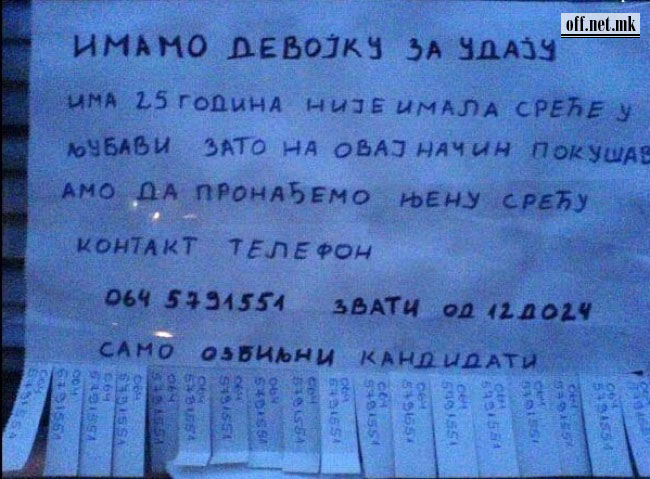 off.net.mk
ИМАМО ДЕВОЈКУ ЗА УДАЈУ
ИМА 25 ГОДИНА НИЈЕ ИМАЛА СРЕЋЕ У
ЉУБАВИ ЗАТО НА ОВАЈ НАЧИН ПОКУШАВ
АМО ДА ПРОНАЂЕМО ЊЕНУ СРЕЋУ
КОНТАКТ ТЕЛЕФОН
064 5791551 ЗВАТИ ОД 12 ДО 24
САМО ОЗБИЉНИ КАНДИДАТИ
064 5791551
064 5791551
064 5791551
064 5791551
064 5791551
064 5791551
064 5791551
064 5791551
064 5791551
064 5791551
064 5791551
064 5791551
064 5791551
064 5791551
064 5791551
064 5791551
064 5791551
064 5791551